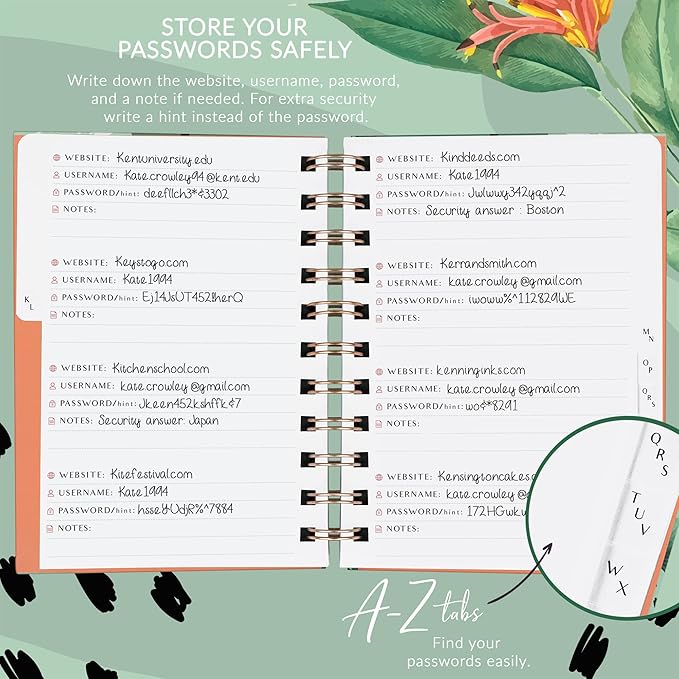 STORE YOUR
PASSWORDS SAFELY
Write down the website, username, password,
and a note if needed. For extra security
write a hint instead of the password.
WEBSITE: Kentuniversity.edu
USERNAME: Kate.crowley94@kent.edu
PASSWORD/hint: deefllch3*¢3302
NOTES:
WEBSITE: Keystogo.com
USERNAME: Kate1994
PASSWORD/hint: Ej14JsUT452IherQ
NOTES:
WEBSITE: Kitchenschool.com
USERNAME: kate.crowley@gmail.com
PASSWORD/hint: Jkeen452kshffk¢7
NOTES: Security answer: Japan
WEBSITE: Kitefestival.com
USERNAME: Kate1994
PASSWORD/hint: hsseYUdjR%^7884
NOTES:
K
L
WEBSITE: Kinddeeds.com
USERNAME: Kate1994
PASSWORD/hint: Jwlwwy342yqqj^2
NOTES: Security answer : Boston
WEBSITE: Kerrandsmith.com
USERNAME: kate.crowley@gmail.com
PASSWORD/hint: iwoww%^112829WE
NOTES:
WEBSITE: kenninginks.com
USERNAME: kate.crowley@gmail.com
PASSWORD/hint: wo¢*8291
NOTES:
WEBSITE: Kensingtoncakes.
USERNAME: kate.crowley@
PASSWORD/hint: 172HGwk
NOTES:
M
N
O
P
Q
R
S
Q
R
S
T
U
V
W
X
A-Z tabs
Find your
passwords easily.